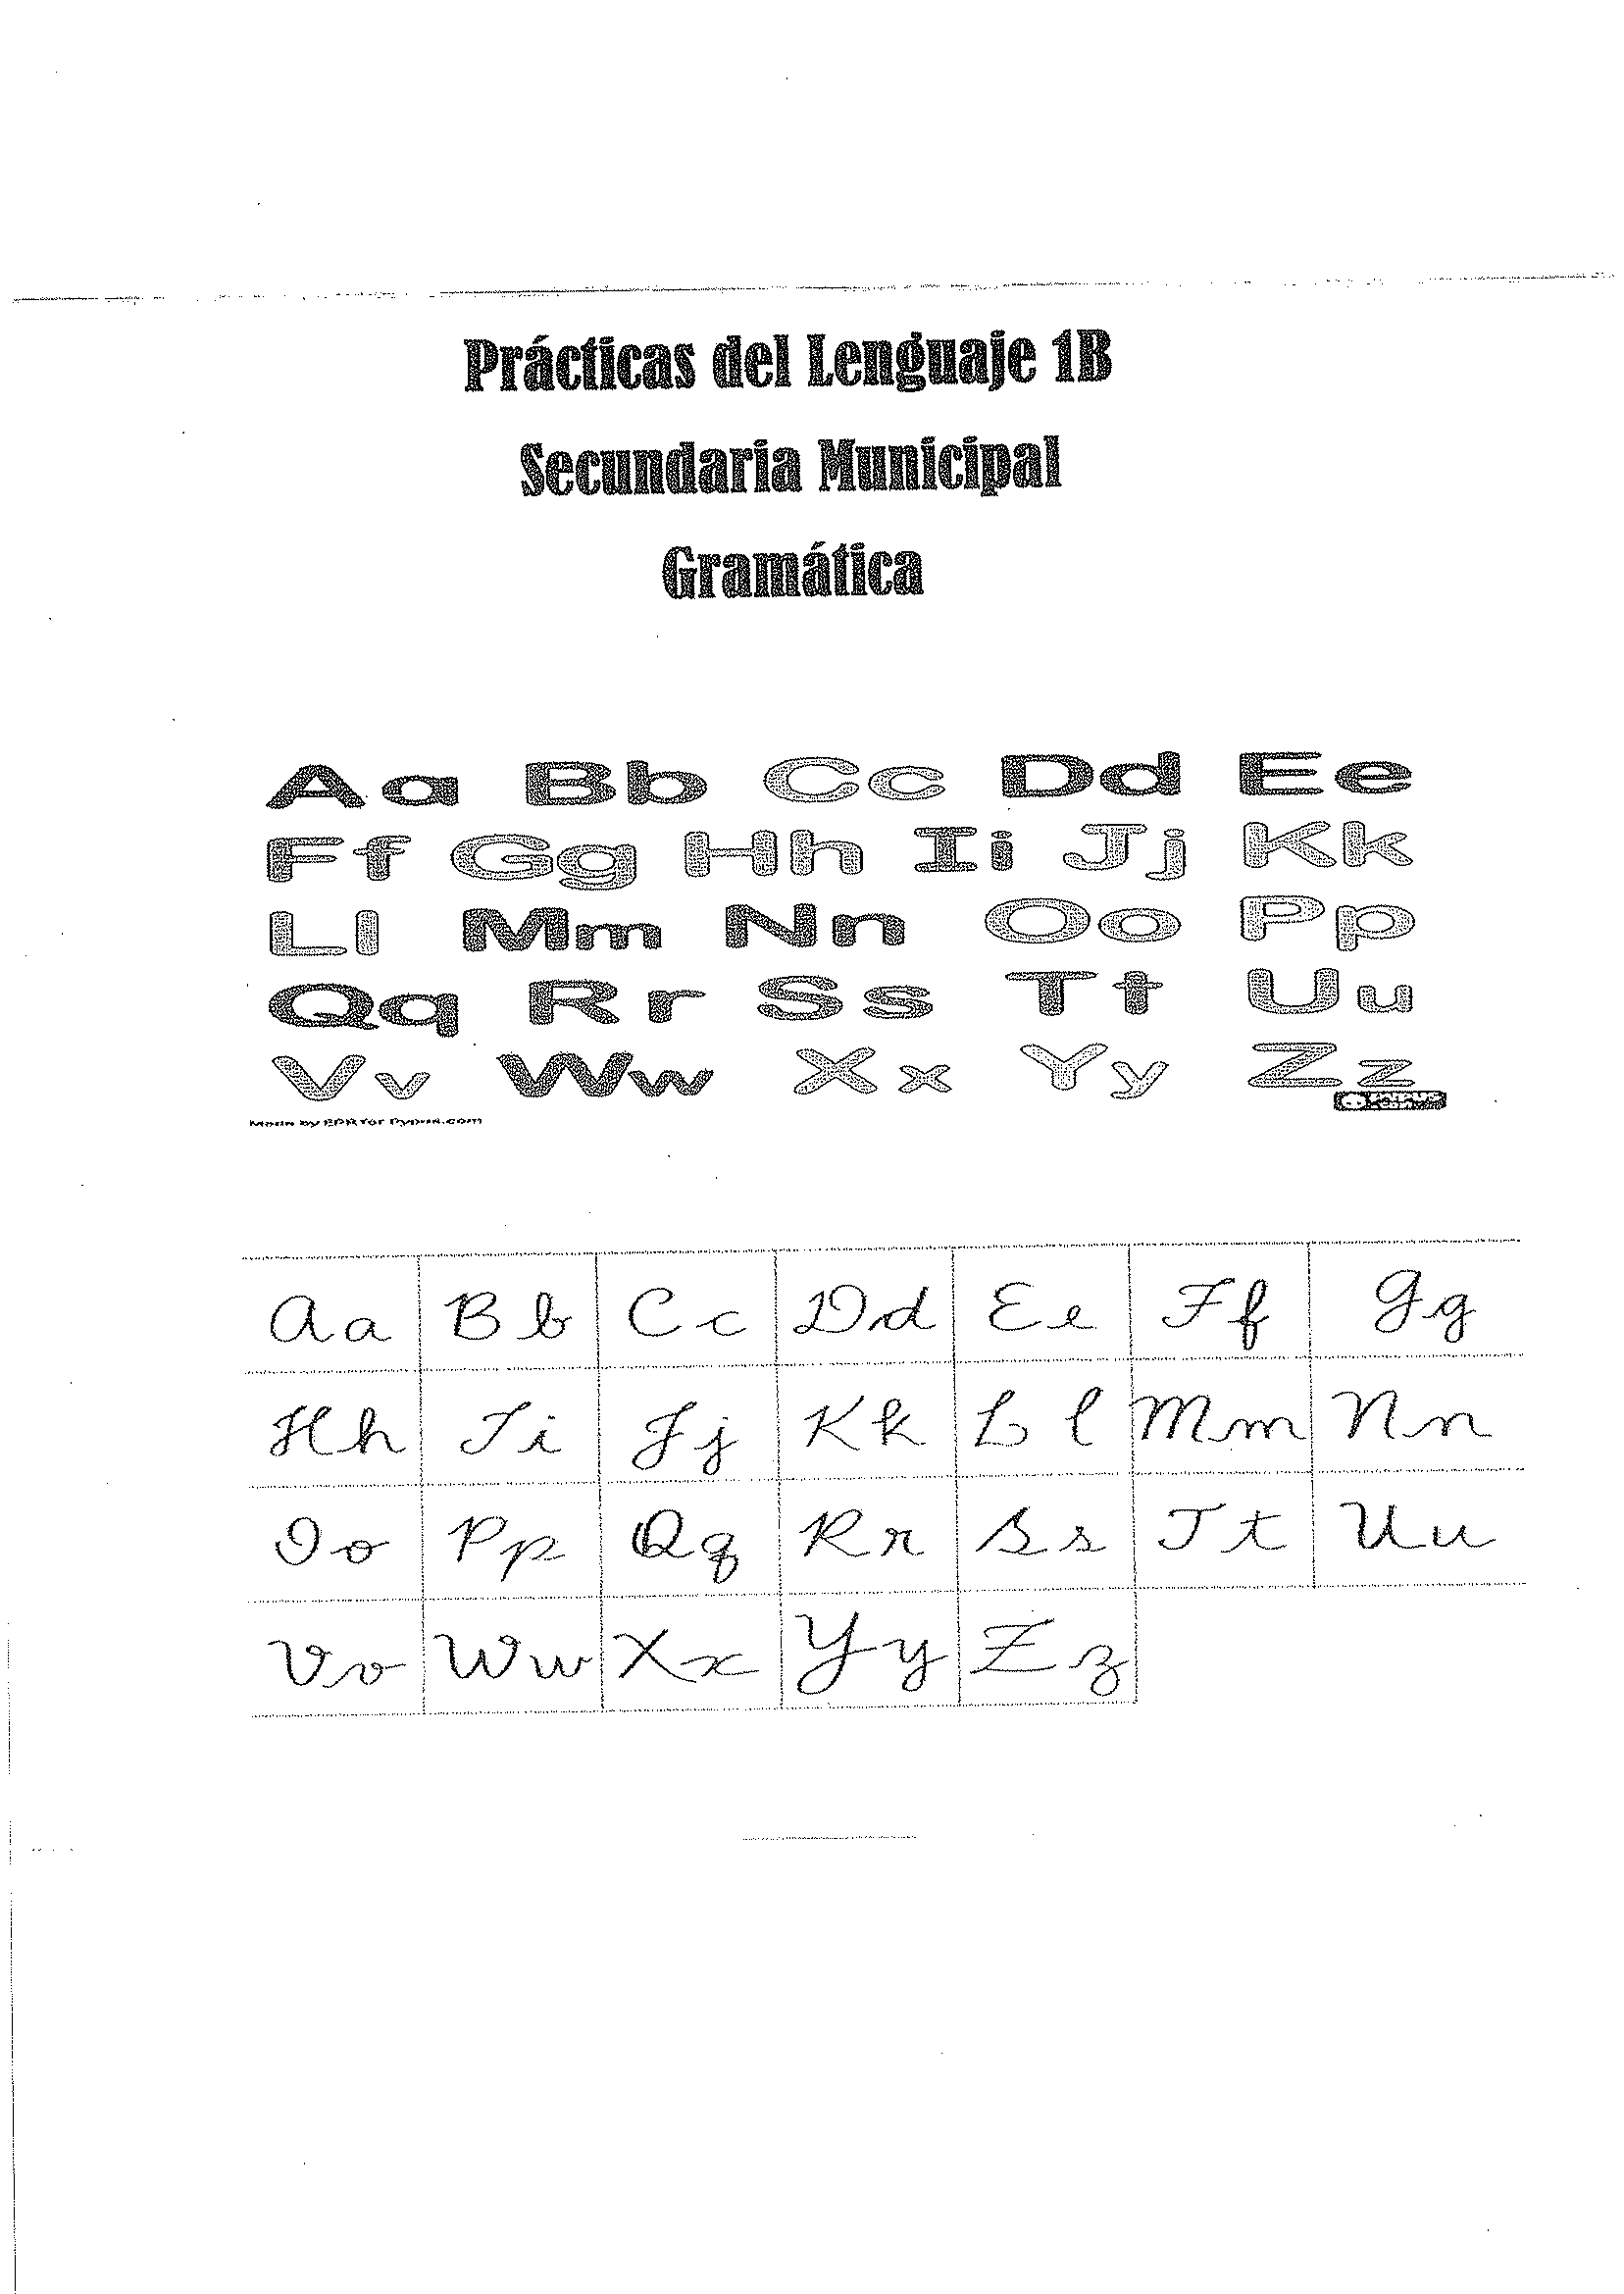 Prácticas del Lenguaje 1B
Secundaria Municipal
Gramática
Aa Bb Cc Dd Ee
Ff Gg Hh Ii Jj Kk
Ll Mm Nn Oo Pp
Qq Rr Ss Tt Uu
Vv Ww Xx Yy Zz
Made by for Pypus.com
Aa Bb Cc Dd Ee Ff Gg
Hh Ii Jj Kk Ll Mm Nn
Oo Pp Qq Rr Ss Tt Uu
Vv Ww Xx Yy Zz